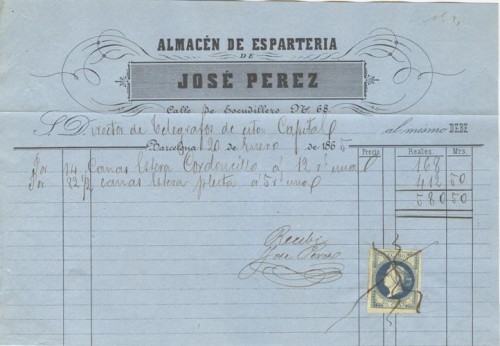 ALMACÉN DE ESPARTERIA
DE
JOSÉ PEREZ
Calle de Escudillers Nº 68.
S. Director de Telegrafos de esta Capital al mismo DEBE
Barcelona 20 de Enero de 186
Precio Reales. Mrs.
Por 14 Canas Estera Cordoncillo á 12 rs una 168
Por 82 1/2 canas estera pleita á 5 rs una 412 50
580 50
Recibi
José Perez